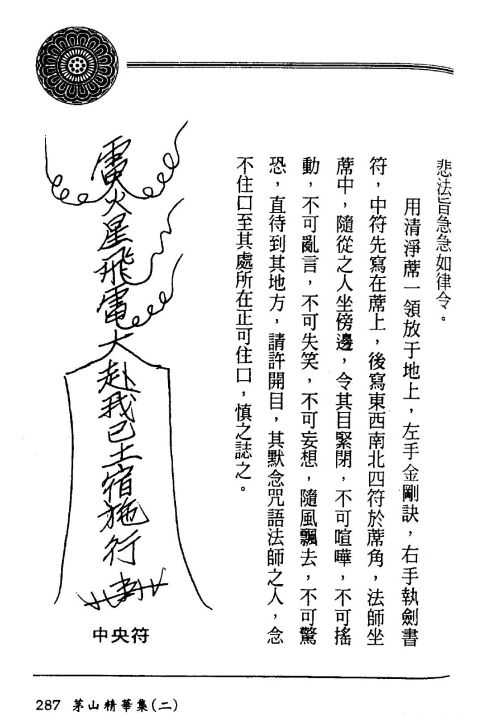 悲法旨急急如律令。
用清淨蓆一領放于地上，左手金剛訣，右手執劍書
符，中符先寫在蓆上，後寫東西南北四符於蓆角，法師坐
蓆中，隨從之人坐傍邊，令其目緊閉，不可喧嘩，不可搖
動，不可亂言，不可失笑，不可妄想，隨風飄去，不可驚
恐，直待到其地方，請許開目，其默念咒語法師之人，念
不住口至其處所在正可住口，慎之誌之。
雷火星飛雷大赴我己土宿施行
中央符
287 茅山精華集(二)